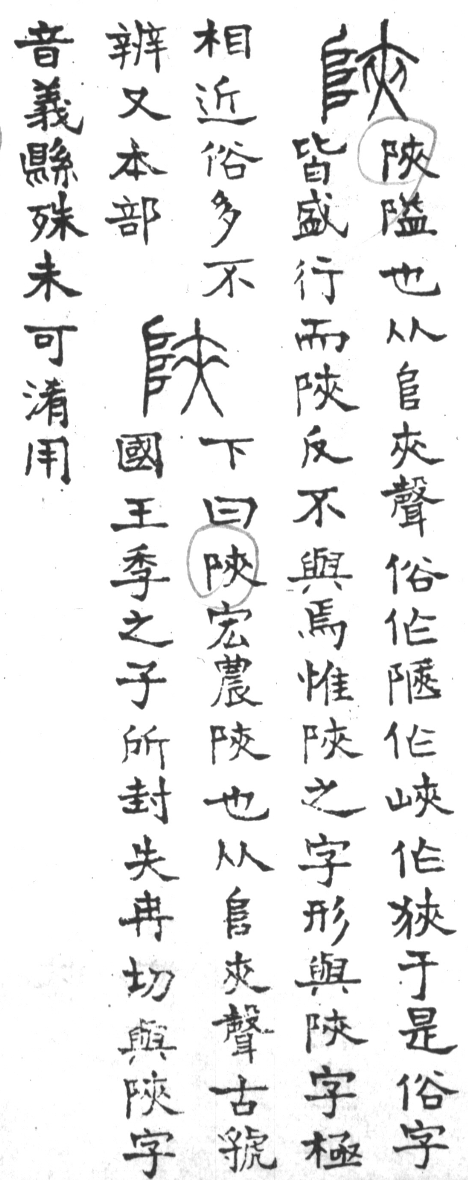 陜
陜隘也从𨸏夾聲俗作陿作峽作狹于是俗字
皆盛行而陜反不與焉惟陝之字形與陜字極
相近俗多不
辨又本部
陝
下曰陝宏農陝也从𨸏㚒聲古虢
國王季之子所封失冉切與陜字
音義縣殊未可淆用